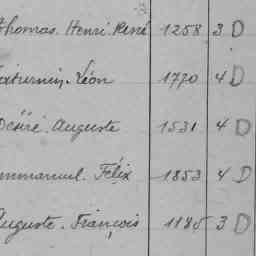 Thomas. Henri. René 1258 3 D
Saturnin. Léon 1770 4 D
Désiré. Auguste 1531 4 D
Emmanuel. Félix 1853 4 D
Auguste. François 1185 3 D